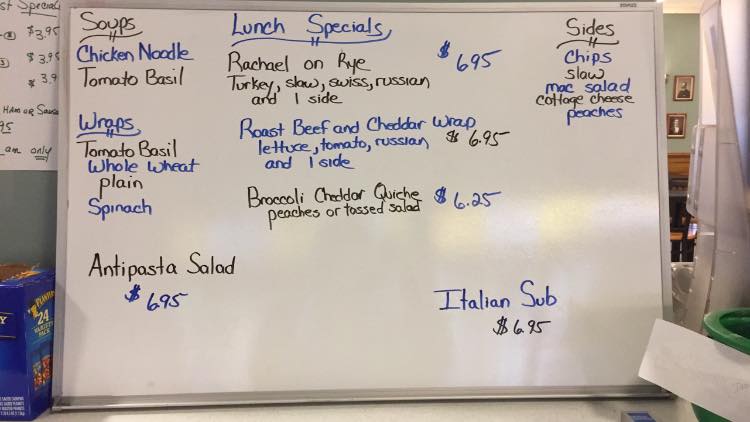 Soups
Chicken Noodle
Tomato Basil
Wraps
Tomato Basil
Whole Wheat
plain
Spinach
Antipasta Salad
$ 695
Lunch Specials
Rachael on Rye $ 695
Turkey, slaw, swiss, russian
and 1 side
Roast Beef and Cheddar Wrap
lettuce, tomato, russian $ 6.95
and 1 side
Broccoli Cheddar Quiche $ 6.25
peaches or tossed salad
Italian Sub
$6.95
Sides
Chips
slaw
mac salad
cottage cheese
peaches
$3.95
$ 3.95
$ 3.9
Ham or
95
only
PLANTERS
24
VARIETY
PACK